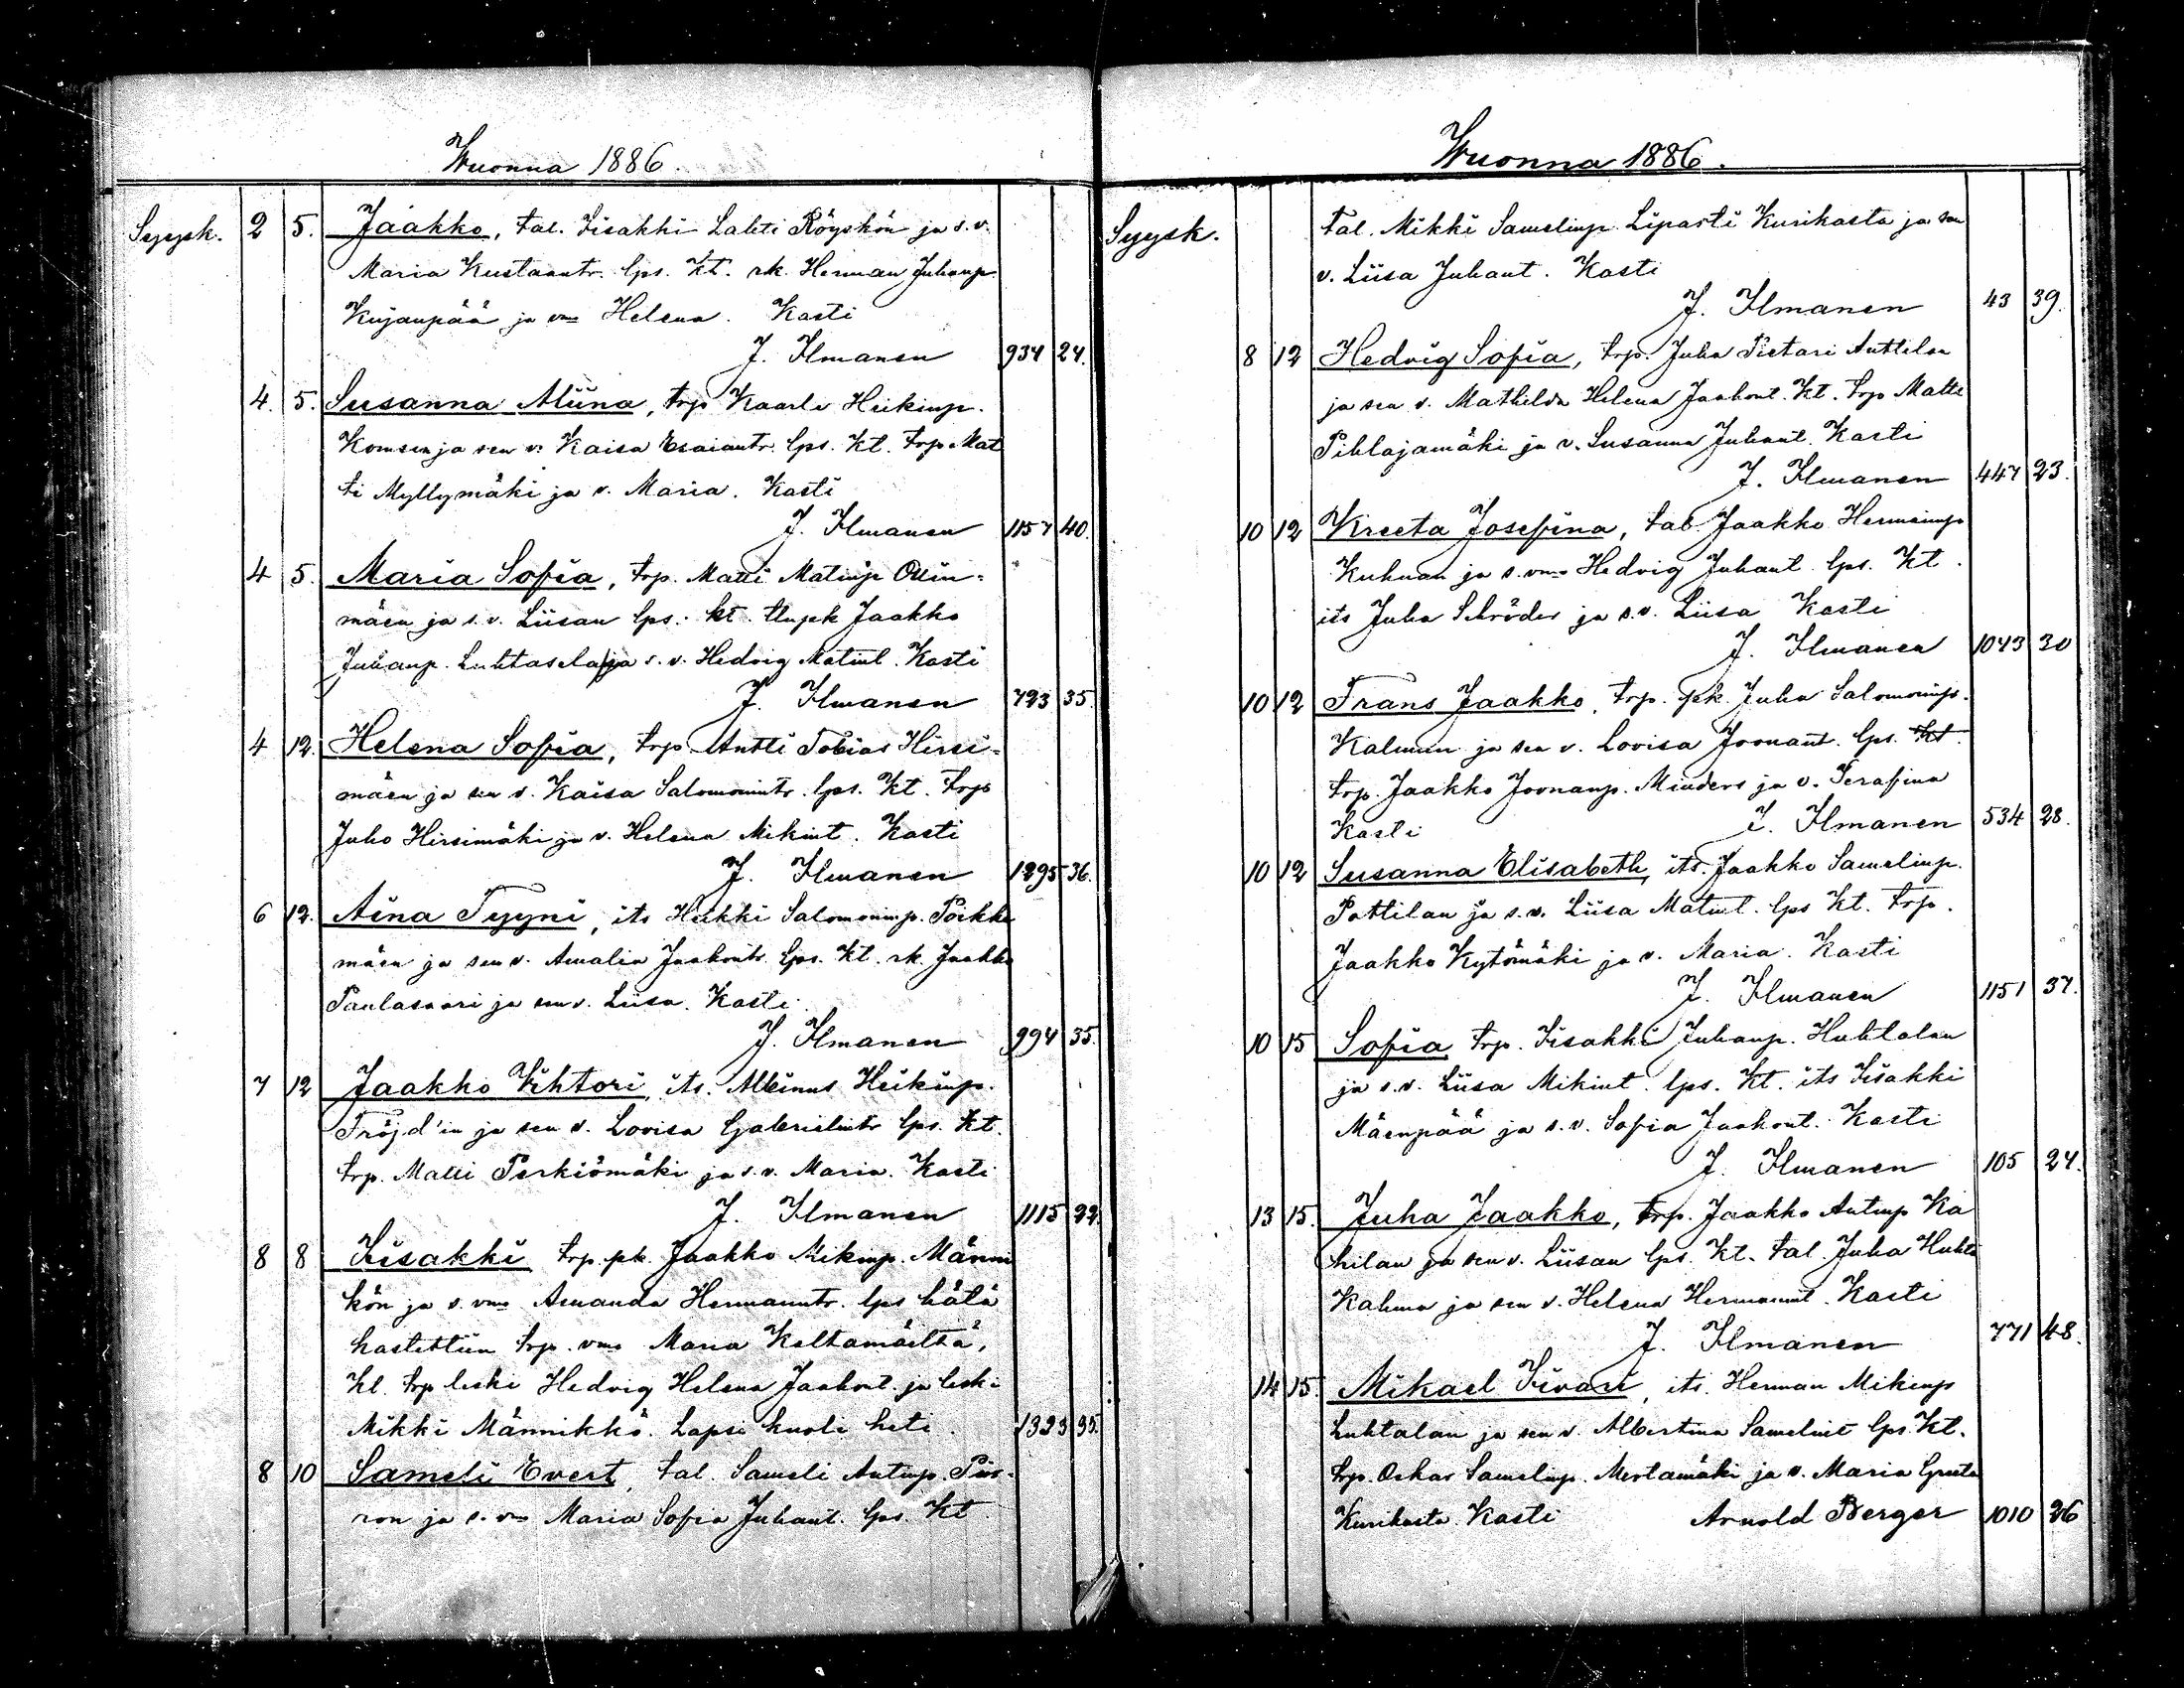 Wuonna 1886.
Syysk. 2 5. Jaakko, tal. Iisakki Lahti Röyskön ja s. v.
Maria Kustaantr. lps. Kt. rk. Herman Juhanp.
Kujanpää ja vmo Helena. Kasti
J. Ilmanen 934 24.
4. 5. Susanna Miina, trp Kaarle Heikinp.
Komsin ja sen v. Kaisa Esaiantr. lps. Kt. trp. Mat
ti Myllymäki ja v. Maria. Kasti
J. Ilmanen 1157 40.
4 5. Maria Sofia, trp. Matti Matinp Ollin-
mäen ja s. v. Liisan lps. kt. Jaakko
Juhanp. ja s. v. Hedvig Matint. Kasti
J. Ilmanen 723 35.
4 12. Helena Sofia, trp. Antti Tobias Hirsi-
mäen ja sen v. Kaisa Salomonintr. lps. Kt. trp
Juho Hirsimäki ja v. Helena Mikint. Kasti
J. Ilmanen 1295 36.
6 12. Aina Tyyni, its Heikki Salomoninp. Poikki
mäen ja sen v. Amalia Jaakontr. lps. Kt. rk. Jaakko
Paulasaari ja sen v. Liisa. Kasti
J. Ilmanen 994 35.
7 12 Jaakko Vihtori, its. Albinus Heikinp.
Fröjd'in ja sen v. Lovisa Gabrielintr lps. Kt.
trp. Matti Perkiömäki ja s. v. Maria. Kasti
J. Ilmanen 1115 22.
8 8 Iisakki trp. pk. Jaakko Mikinp. Männi
kön ja s. vmo Amanda Hermanntr. lps hätä
kastettiin trp. vmo Maria Keltamäeltä,
Kt. trp leski Hedvig Helena Jaakont. ja leski
Mikki Männikkö. Lapsi kuoli heti. 1323 35.
8 10 Sameli Evert, tal. Sameli Antinp. Piir-
ron ja s. vmo Maria Sofia Juhant. lps. Kt
Wuonna 1886.
Syysk. tal. Mikki Samelinp. Liparti Kurikasta ja sen
v. Liisa Juhant. Kasti
J. Ilmanen 43 39.
8 12 Hedvig Sofia, trp. Juha Pietari Anttilan
ja sen v. Mathilda Helena Jaakont. Kt. trp Matti
Pihlajamäki ja v. Susanna Juhant. Kasti
J. Ilmanen 447 23.
10 12 Kreeta Josefina, tal. Jaakko Hermaninp
Kuhnan ja s. vmo Hedvig Juhant. lps. Kt.
its Juha Schröder ja s. v. Liisa Kasti
J. Ilmanen 1043 30
10 12 Frans Jaakko, trp. pk. Juha Salomoninp.
Kalmin ja sen v. Lovisa Joonant. lps. Kt.
trp. Jaakko Joonanp. Minders ja v. Serafina
Kasti J. Ilmanen 534 28.
10 12 Susanna Elisabeth, its. Jaakko Samelinp.
Pottilan ja s. v. Liisa Matint. lps Kt. trp.
Jaakko Kytömäki ja v. Maria. Kasti
J. Ilmanen 1151 37.
10 15 Sofia trp. Iisakki Juhanp. Huhtalan
ja s. v. Liisa Mikint. lps. Kt. its Iisakki
Mäenpää ja s. v. Sofia Jaakont. Kasti
J. Ilmanen 105 24.
13 15. Juha Jaakko, trp. Jaakko Antinp Ka
hilan ja sen v. Liisan lps. Kt. tal. Juha Huhta
Kahma ja sen v. Helena Hermannt. Kasti
J. Ilmanen 771 48.
14 15. Mikael Iivari, its. Herman Mikinp
Luhtalan ja sen v. Albertina Samelint lps. Kt.
trp. Oskar Samelinp. Mertamäki ja v. Maria Greeta
Kurikasta. Kasti Arnold Berger 1010 26